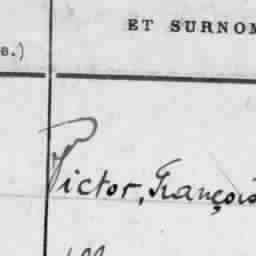 ET SURNOM
e.)
Victor, François